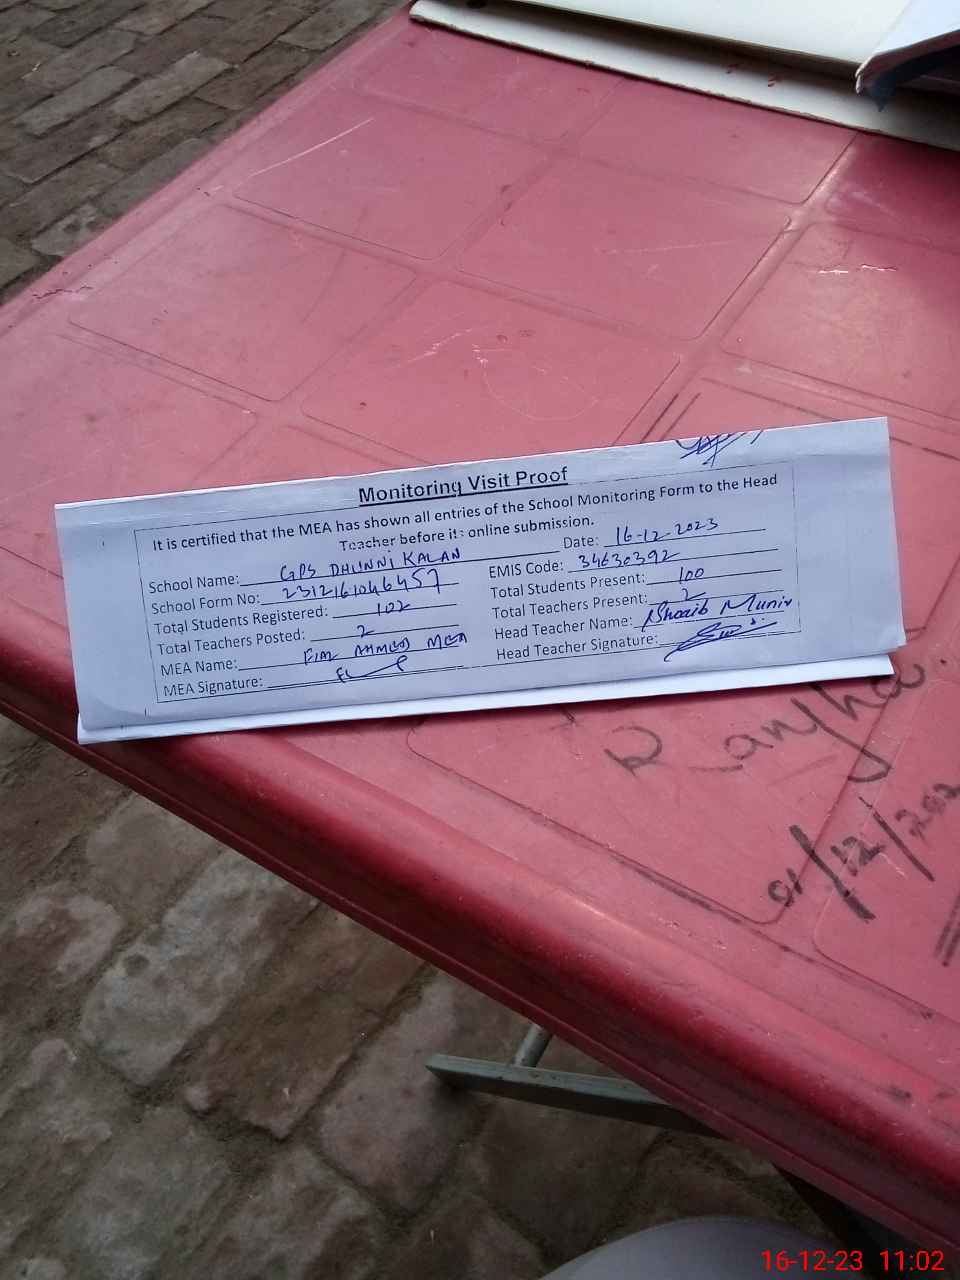 Monitoring Visit Proof
It is certified that the MEA has shown all entries of the School Monitoring Form to the Head
Teacher before its online submission.
School Name: GPS DHUNNI KALAN Date: 16-12-2023
School Form No: 2312161046457 EMIS Code: 34630392
Total Students Registered: 102 Total Students Present: 100
Total Teachers Posted: 2 Total Teachers Present: 2
MEA Name: AHMED MEA Head Teacher Name: Shoaib Munir
MEA Signature: Head Teacher Signature:
Ranjha
01/12/202
16-12-23 11:02